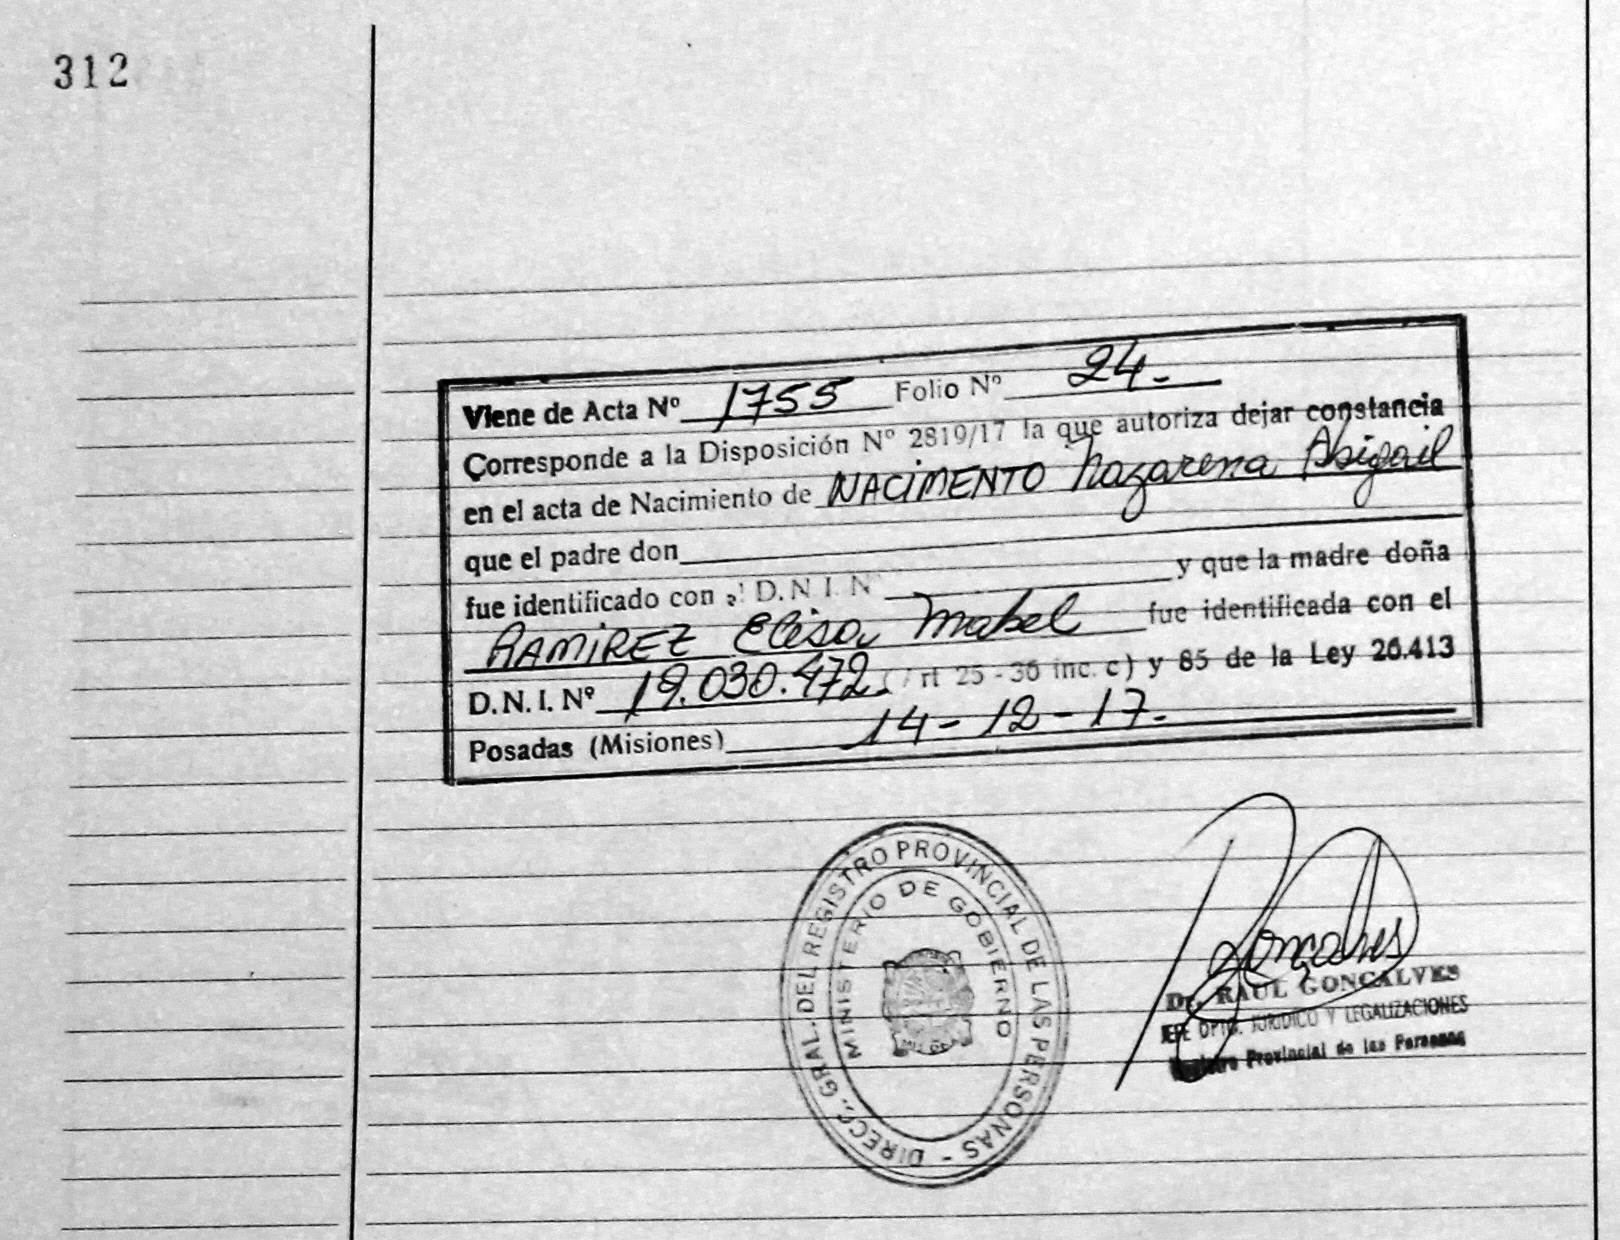 312
Viene de Acta Nº 1755 Folio Nº 24.
Corresponde a la Disposición Nº 2819/17 la que autoriza dejar constancia
en el acta de Nacimiento de NACIMENTO Nazarena Abigail
que el padre don
fue identificado con el D.N.I. Nº y que la madre doña
RAMIREZ Elisa Mabel fue identificada con el
D.N.I. Nº 19.030.472. (Art 25 - 36 inc. c) y 85 de la Ley 26.413
Posadas (Misiones) 14-12-17.
DIRECC. GRAL. DEL REGISTRO PROVINCIAL DE LAS PERSONAS -
MINISTERIO DE GOBIERNO
Goncalves
Dr. RAUL GONCALVES
JEFE DPTO. JURIDICO Y LEGALIZACIONES
Registro Provincial de las Personas